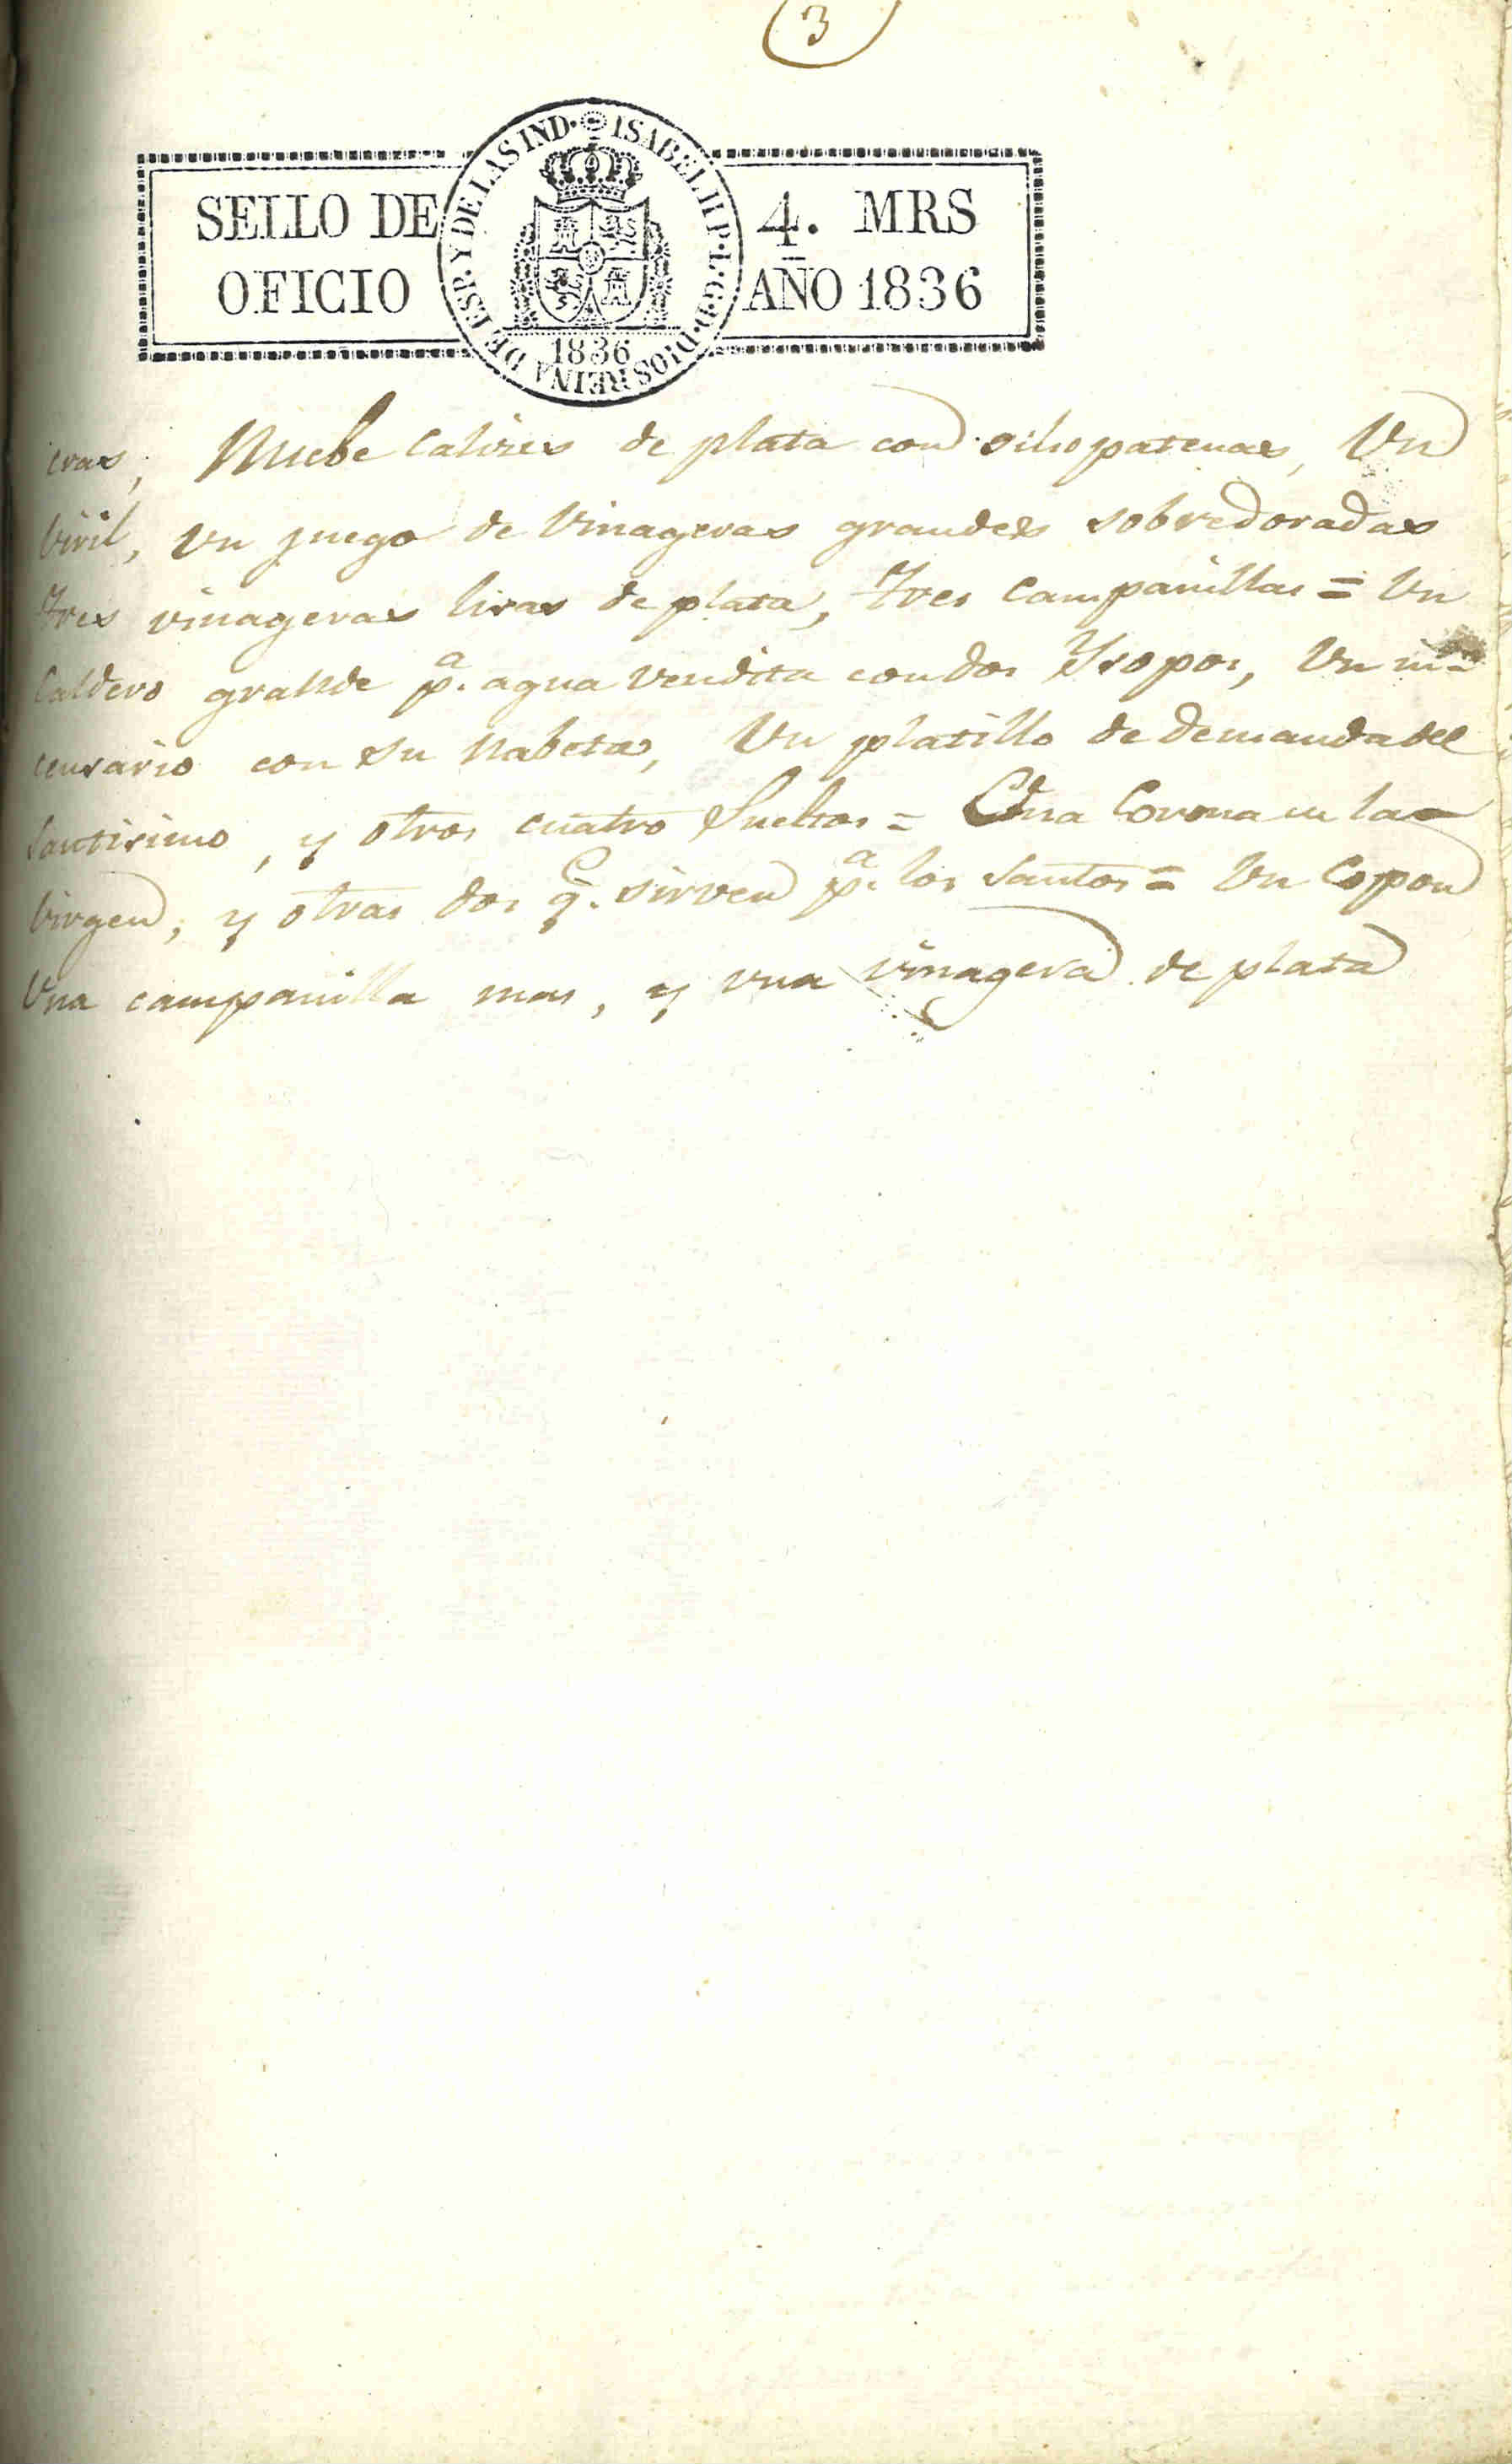 3
SELLO DE OFICIO
4. MRS AÑO 1836
ISABEL II P. L. G. D. DIOS REINA DE ESP. Y DE LAS IND.
1836
cras, Nuebe Calices de plata con ocho patenas, Un
Viril, Un juego de Vinageras grandes sobredoradas
tres vinageras lisas de plata, tres Campanillas = Un
Caldero grande p.ª agua vendita con dos Ysopos, Un in=
censario con su Nabeta, Un platillo de demanda del
Santisimo, y otros cuatro Sueltos = Una Corona en la
Virgen, y otras dos q.e sirven p.ª los Santos = Un Copon
Una campanilla mas, y una vinagera de plata